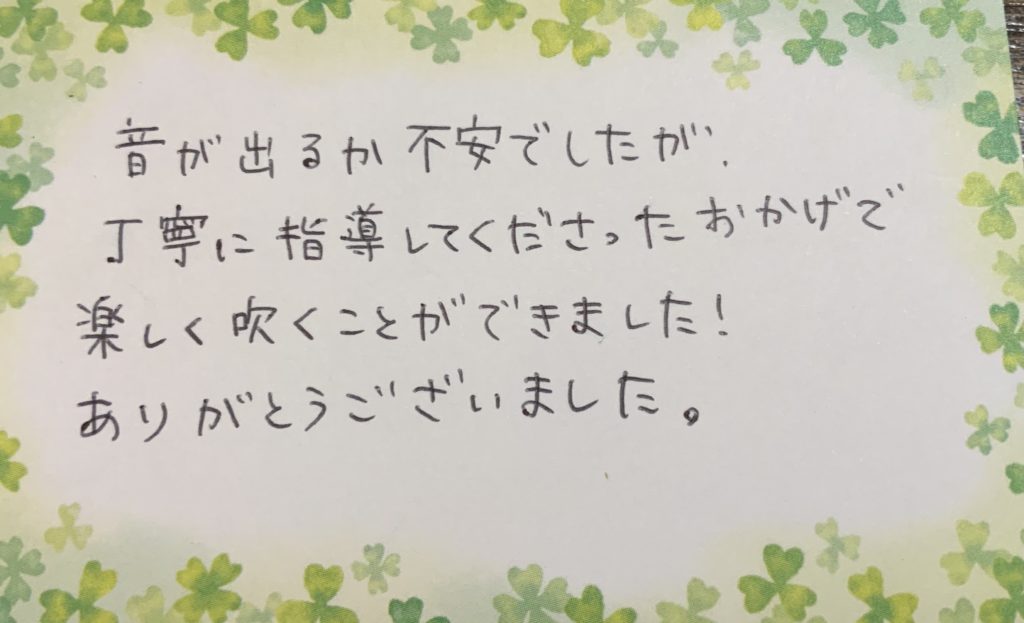 音が出るか不安でしたが、
丁寧に指導してくださったおかげで
楽しく吹くことができました!
ありがとうございました。